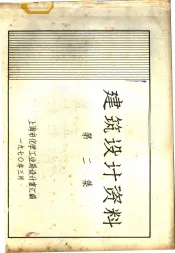 建筑设计资料
第二集
上海市化学工业局设计室汇编
一九七〇年三月